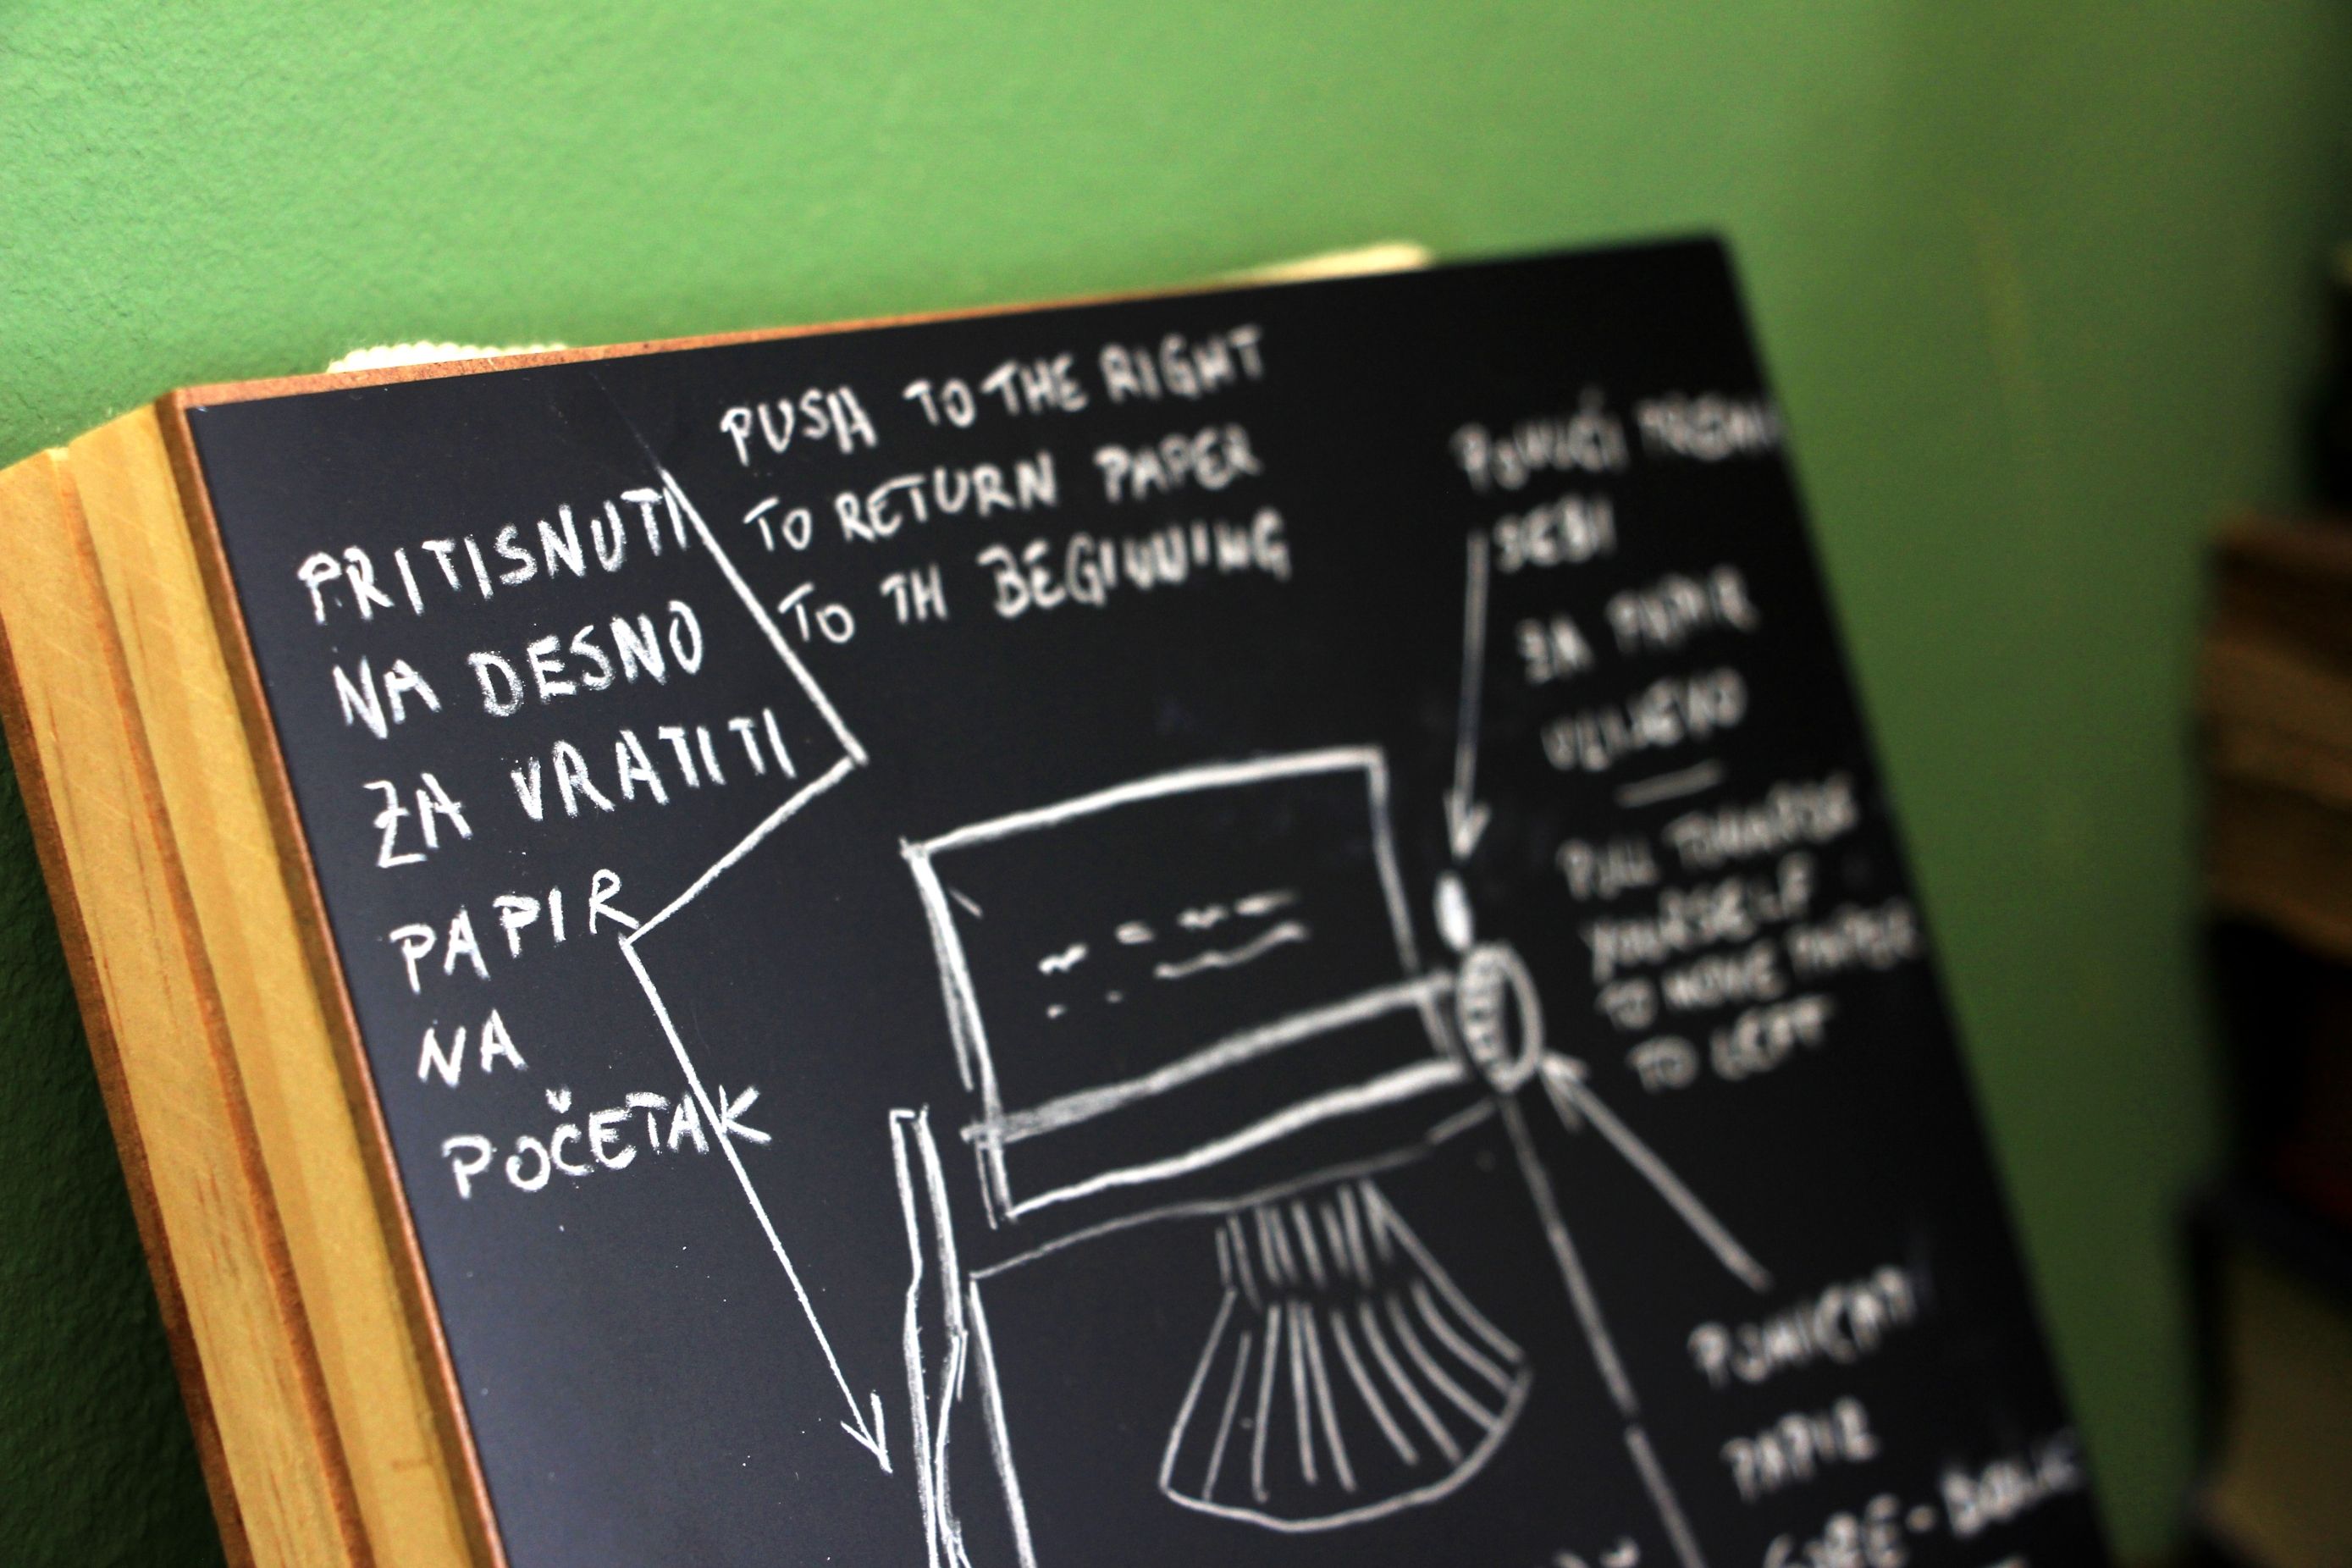 PUSH TO THE RIGHT
TO RETURN PAPER
TO TH BEGINNING
PRITISNUTI
NA DESNO
ZA VRATITI
PAPIR
NA
POČETAK
SEBI
ZA PAPIR
PULL TOWARDS
YOURSELF
TO MOVE PAPER
TO LEFT
POMICATI
PAPIR
GORE-DOLJE